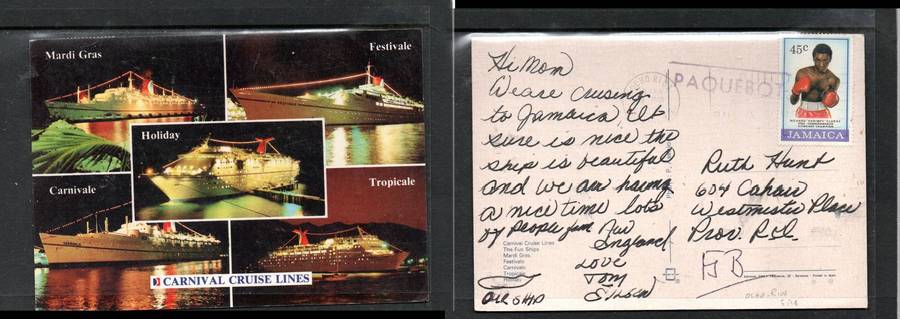 Mardi Gras
Festivale
Holiday
Carnivale
Tropicale
CARNIVAL CRUISE LINES
Hi Mom
We are cruising
to Jamaica It
sure is nice the
ship is beautiful
and we are having
a nice time lots
of people from New
England
LOVE
Tom
our ship
Carnival Cruise Lines
The Fun Ships
Mardi Gras
Festivale
Carnivale
Tropicale
Holiday
PAQUEBOT
45c
JAMAICA
Ruth Hunt
604
Westminster Place
Prov. R.I.